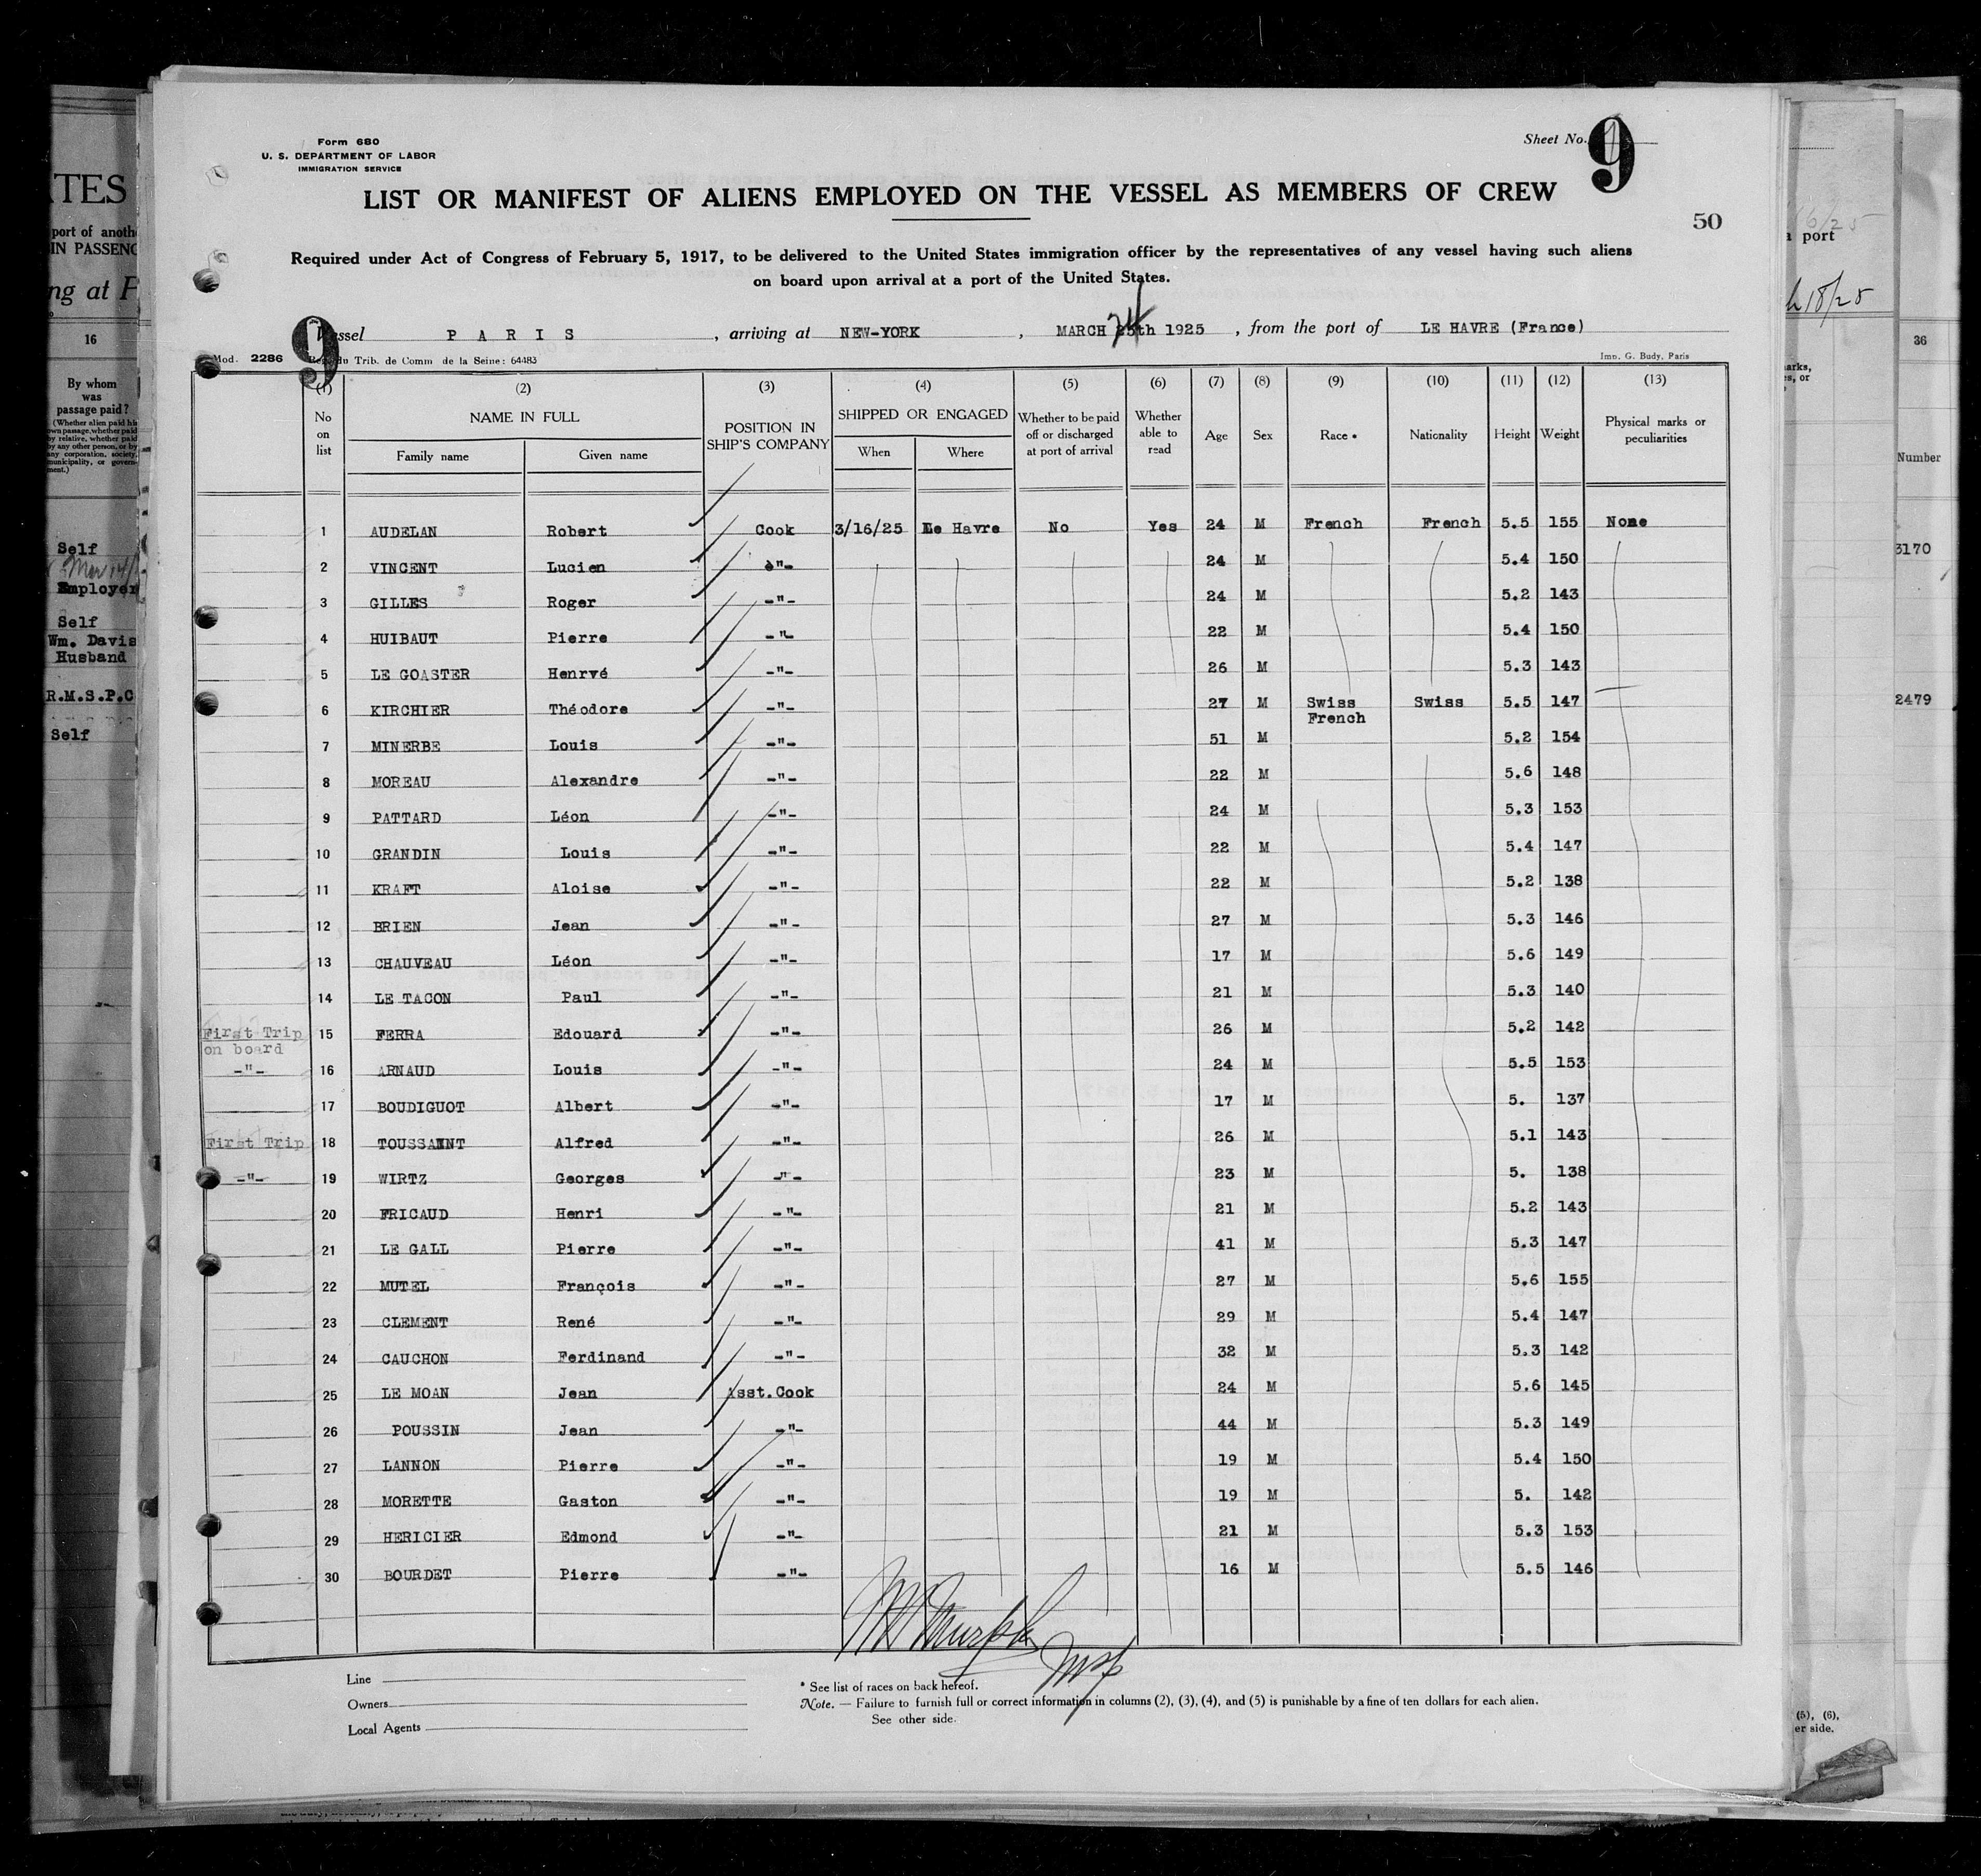 Form 680
U. S. DEPARTMENT OF LABOR
IMMIGRATION SERVICE
Sheet No. 9
LIST OR MANIFEST OF ALIENS EMPLOYED ON THE VESSEL AS MEMBERS OF CREW
50
Required under Act of Congress of February 5, 1917, to be delivered to the United States immigration officer by the representatives of any vessel having such aliens
on board upon arrival at a port of the United States.
9
Vessel PARIS , arriving at NEW-YORK , MARCH 24th 1925 , from the port of LE HAVRE (France)
Mod. 2286 Reg. du Trib. de Comm de la Seine: 64483 Imp. G. Budy, Paris
(1) (2) (3) (4) (5) (6) (7) (8) (9) (10) (11) (12) (13)
No on list NAME IN FULL Family name Given name POSITION IN SHIP'S COMPANY SHIPPED OR ENGAGED When Where Whether to be paid off or discharged at port of arrival Whether able to read Age Sex Race * Nationality Height Weight Physical marks or peculiarities
1 AUDELAN Robert Cook 3/16/25 Le Havre No Yes 24 M French French 5.5 155 None
2 VINCENT Lucien -"- 24 M 5.4 150
3 GILLES Roger -"- 24 M 5.2 143
4 HUIBAUT Pierre -"- 22 M 5.4 150
5 LE GOASTER Henrvé -"- 26 M 5.3 143
6 KIRCHIER Théodore -"- 27 M Swiss Swiss 5.5 147
7 MINERBE Louis -"- 51 M French 5.2 154
8 MOREAU Alexandre -"- 22 M 5.6 148
9 PATTARD Léon -"- 24 M 5.3 153
10 GRANDIN Louis -"- 22 M 5.4 147
11 KRAFT Aloise -"- 22 M 5.2 138
12 BRIEN Jean -"- 27 M 5.3 146
13 CHAUVEAU Léon -"- 17 M 5.6 149
14 LE TACON Paul -"- 21 M 5.3 140
First Trip on board 15 FERRA Edouard -"- 26 M 5.2 142
-"- 16 ARNAUD Louis -"- 24 M 5.5 153
17 BOUDIGUOT Albert -"- 17 M 5. 137
First Trip 18 TOUSSAINT Alfred -"- 26 M 5.1 143
-"- 19 WIRTZ Georges -"- 23 M 5. 138
20 FRICAUD Henri -"- 21 M 5.2 143
21 LE GALL Pierre -"- 41 M 5.3 147
22 MUTEL François -"- 27 M 5.6 155
23 CLEMENT René -"- 29 M 5.4 147
24 CAUCHON Ferdinand -"- 32 M 5.3 142
25 LE MOAN Jean Asst.Cook 24 M 5.6 145
26 POUSSIN Jean -"- 44 M 5.3 149
27 LANNON Pierre -"- 19 M 5.4 150
28 MORETTE Gaston -"- 19 M 5. 142
29 HERICIER Edmond -"- 21 M 5.3 153
30 BOURDET Pierre -"- 16 M 5.5 146
Line
Owners
Local Agents
* See list of races on back hereof.
Note. — Failure to furnish full or correct information in columns (2), (3), (4), and (5) is punishable by a fine of ten dollars for each alien.
See other side.
TES
port of anoth
IN PASSENG
ng at
16
By whom
was
passage paid?
(Whether alien paid his
own passage, whether paid
by relative, whether paid
by any other person, or by
any corporation, society,
municipality, or govern-
ment.)
Self
Employer
Self
Wm. Davis
Husband
R.M.S.P.C
Self
a port
36
Number
3170
2479
(5), (6),
er side.